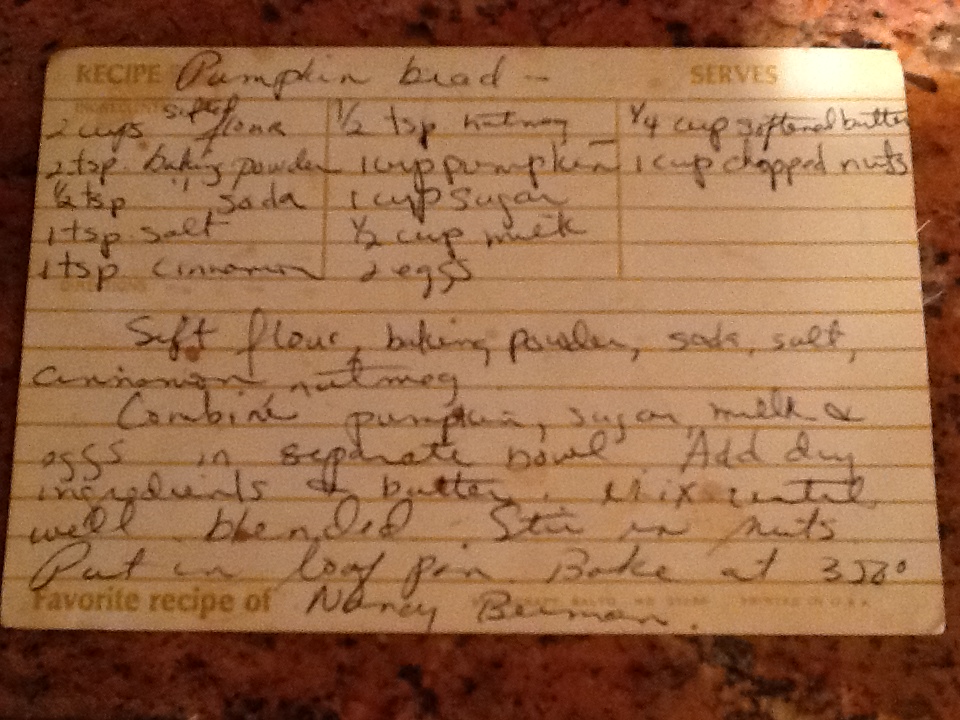 RECIPE Pumpkin bread – SERVES
INGREDIENTS
2 cups sifted flour
2 tsp baking powder
½ tsp " soda
1 tsp salt
1 tsp cinnamon
½ tsp nutmeg
1 cup pumpkin
1 cup sugar
½ cup milk
2 eggs
¼ cup softened butter
1 cup chopped nuts
DIRECTIONS
Sift flour, baking powder, soda, salt,
cinnamon nutmeg
Combine pumpkin, sugar, milk &
eggs in separate bowl Add dry
ingredients & butter. Mix until
well blended. Stir in nuts
Put in loaf pan Bake at 350°
Favorite recipe of Nancy Berman.
PRINTED IN U.S.A.